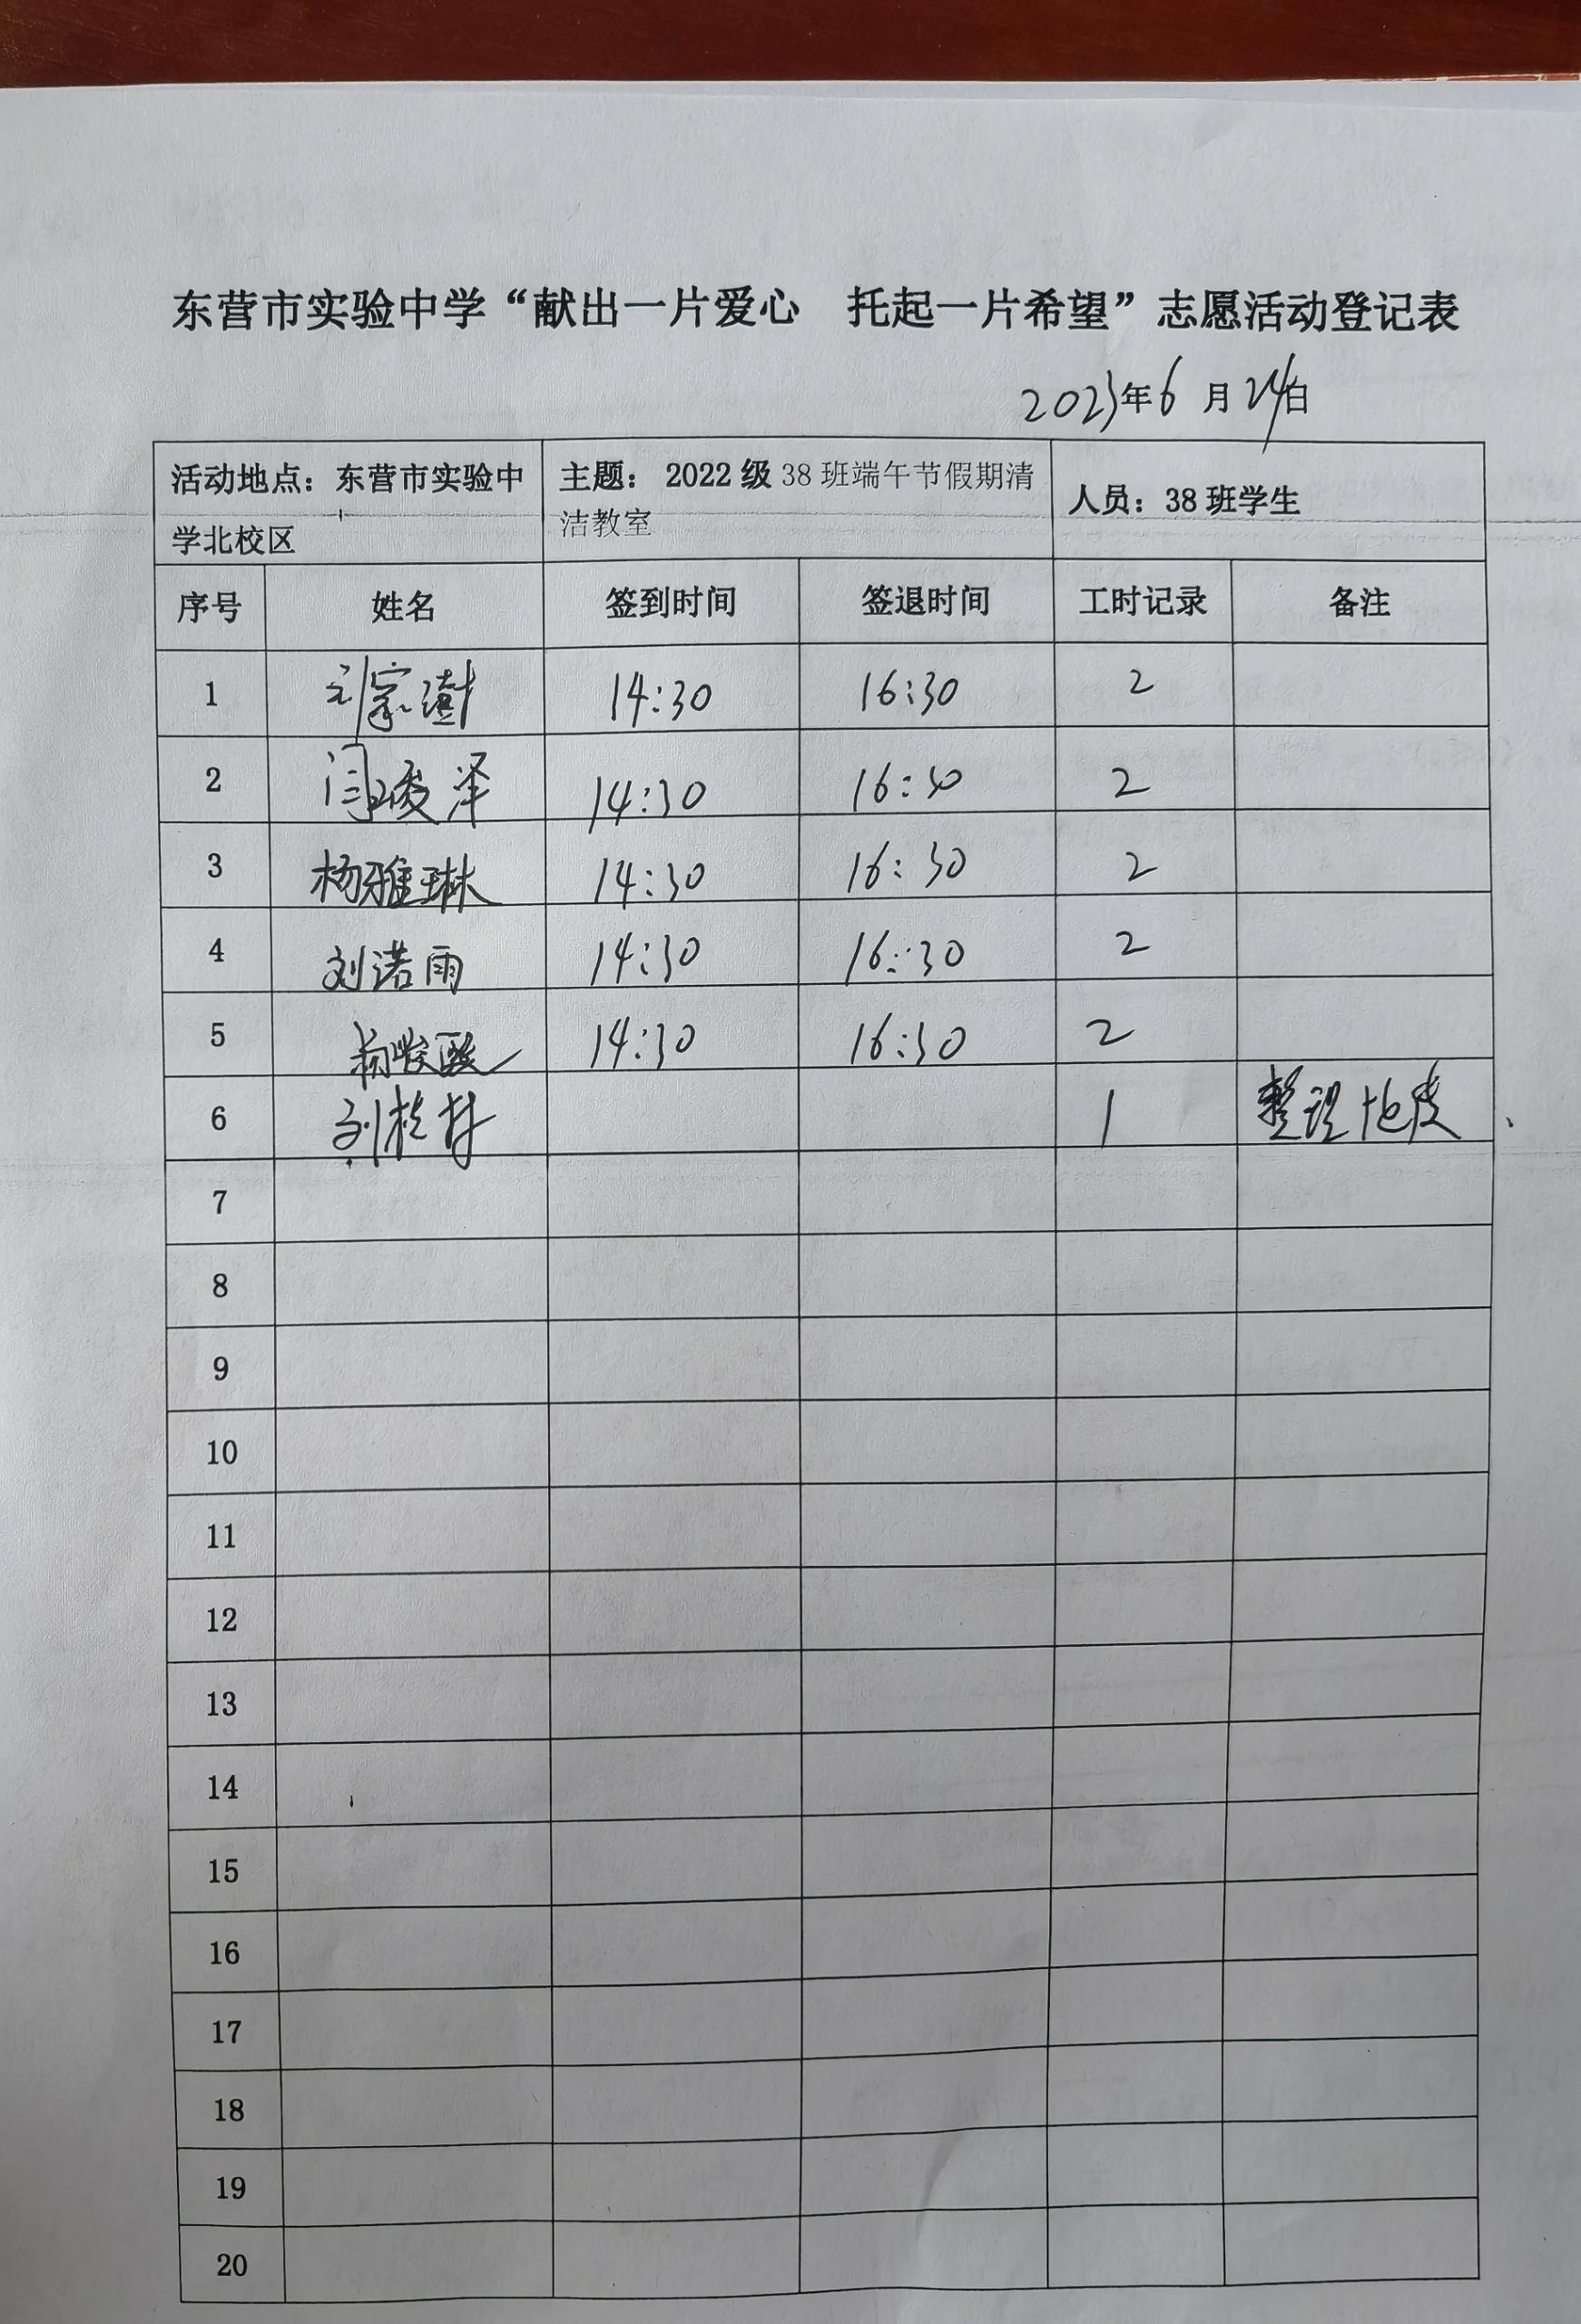 东营市实验中学“献出一片爱心 托起一片希望”志愿活动登记表
2023年6月24日
活动地点：东营市实验中学北校区 主题：2022级38班端午节假期清洁教室 人员：38班学生
序号 姓名 签到时间 签退时间 工时记录 备注
1 刘家澍 14:30 16:30 2
2 闫峻泽 14:30 16:30 2
3 杨雅琳 14:30 16:30 2
4 刘诺雨 14:30 16:30 2
5 14:30 16:30 2
6 1 整理
7
8
9
10
11
12
13
14
15
16
17
18
19
20